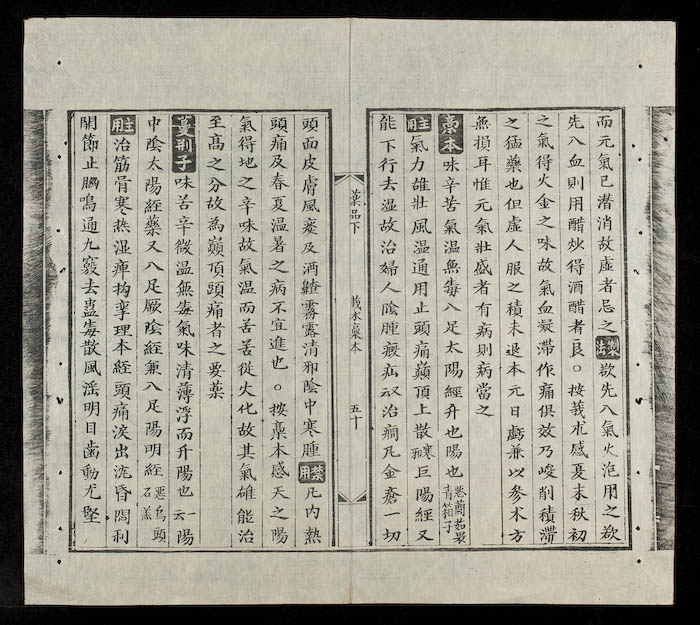 而元氣已潛消故虛者忌之製法欲先入氣火泡用之欲
先入血則用醋炒得酒醋者良○按莪朮感夏末秋初
之氣得火金之味故氣血凝滯作痛俱效乃峻削積滯
之猛藥也但虛人服之積未退本元日虧兼以參朮方
無損耳惟元氣壯盛者有病則病當之
藁本味辛苦氣溫無毒入足太陽經升也陽也惡䕡茹畏青箱子
主用氣力雄壯風濕通用止頭痛巔頂上散寒邪巨陽經又
能下行去濕故治婦人陰腫疝又治癇凡金瘡一切
藥品下 莪朮藁本 五十
頭面皮膚風疾及酒皶霧露清邪陰中寒腫禁用凡內熱
頭痛及春夏溫暑之病不宜進也○按藁本感天之陽
氣得地之辛味故氣溫而苦苦從火化故其氣雄能治
至高之分故為巔頂頭痛者之要藥
蔓荊子味苦辛微溫無毒氣味清薄浮而升陽也一云陽
中陰太陽經藥又入足厥陰經兼入足陽明經惡烏頭石羔
主用治筋骨寒熱濕痺拘攣理本經頭痛淚出沈昏悶利
關節止腦鳴通九竅去蟲毒散風淫明目齒動尤堅